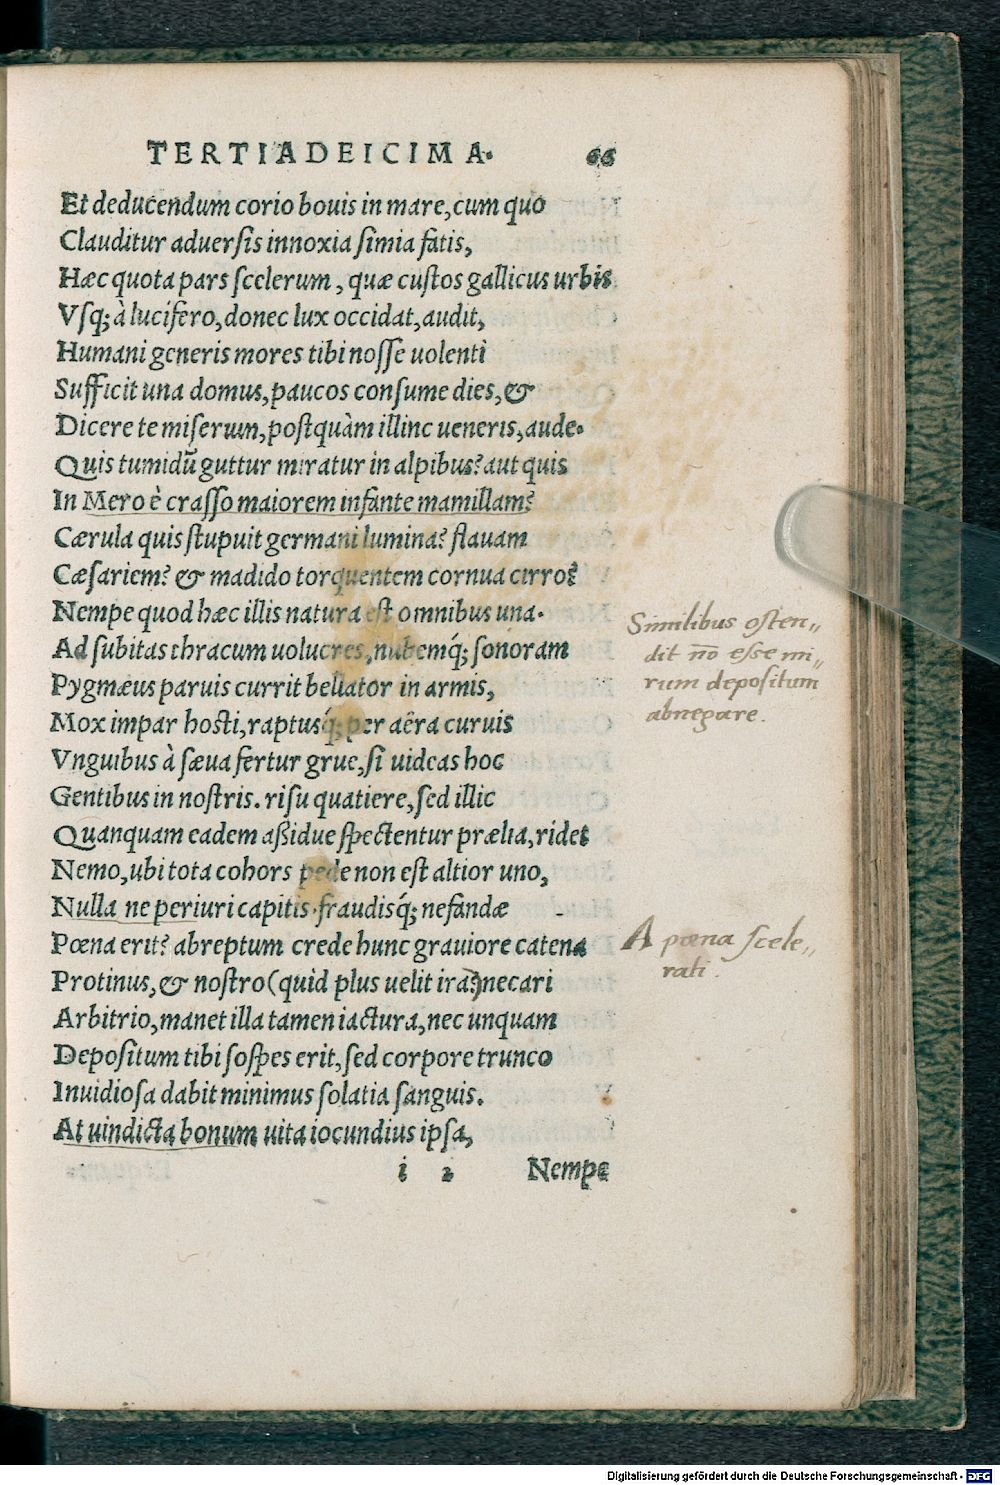 TERTIADEICIMA. 66
Et deducendum corio bouis in mare, cum quo
Clauditur aduersis innoxia simia fatis,
Hæc quota pars scelerum, quæ custos gallicus urbis
Vsq; à lucifero, donec lux occidat, audit,
Humani generis mores tibi nosse uolenti
Sufficit una domus, paucos consume dies, &
Dicere te miserum, postquàm illinc ueneris, aude.
Quis tumidū guttur miratur in alpibus? aut quis
In Mero è crasso maiorem infante mamillam?
Cærula quis stupuit germani lumina? flauam
Cæsariem? & madido torquentem cornua cirro?
Nempe quod hæc illis natura est omnibus una.
Ad subitas thracum uolucres, nubemq́; sonoram
Pygmæus paruis currit bellator in armis,
Mox impar hosti, raptusq́; per aëra curuis
Vnguibus à sæua fertur grue, si uideas hoc
Gentibus in nostris. risu quatiere, sed illic
Quanquam eadem aßidue spectentur prælia, ridet
Nemo, ubi tota cohors pede non est altior uno,
Nulla ne periuri capitis fraudisq́; nefandæ
Pœna erit? abreptum crede hunc grauiore catena
Protinus, & nostro (quid plus uelit ira?) necari
Arbitrio, manet illa tamen iactura, nec unquam
Depositum tibi sospes erit, sed corpore trunco
Inuidiosa dabit minimus solatia sanguis.
At uindicta bonum uita iocundius ipsa,
i 2 Nempe
Similibus osten„
dit nō esse mi„
rum depositum
abnegare.
A pœna scele„
rati.
Digitalisierung gefördert durch die Deutsche Forschungsgemeinschaft - DFG